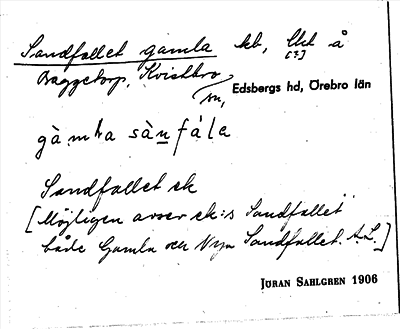 Sandfallet gamla hb, Utd å
[?]
Baggetorp, Kvistbro
sn, Edsbergs hd, Örebro län
gàmla sànfála
Sandfallet ek
[Möjligen avser ek:s Sandfallet
både Gamla och Nya Sandfallet. A.L.]
JÖRAN SAHLGREN 1906